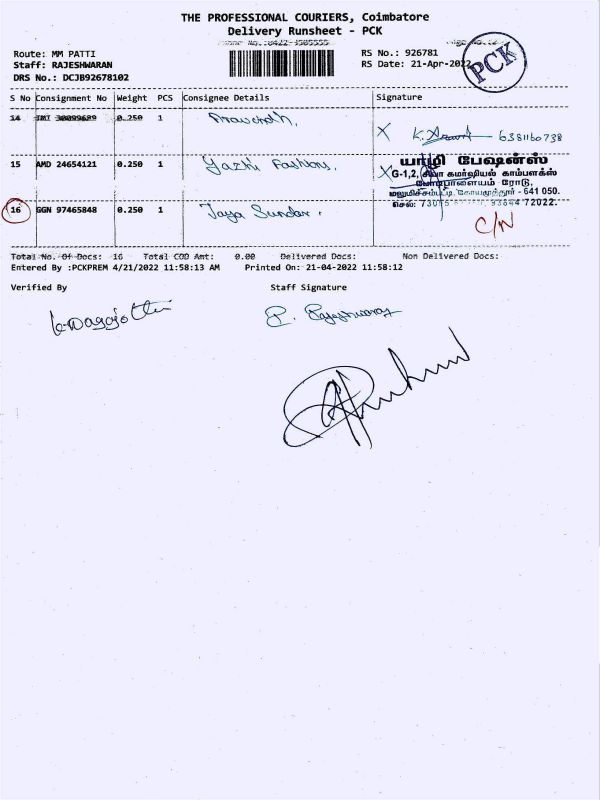 THE PROFESSIONAL COURIERS, Coimbatore
Delivery Runsheet - PCK
Phone No.:0422-3505555
Route: MM PATTI
RS No.: 926781
Staff: RAJESHWARAN
RS Date: 21-Apr-2022
PCK
DRS No.: DCJB92678102
S No Consignment No Weight PCS Consignee Details Signature
14 0.250 1
X K. 6381160738
15 AMD 24654121 0.250 1 Yazhi Fashions,
X யாழி பேஷன்ஸ்
G-1,2, சிவா கமர்ஷியல் காம்பளக்ஸ்
போம்பாளையம் ரோடு,
மலுமிச்சம்பட்டி, கோயமுத்தூர் - 641 050.
செல்: 72022.
16 GGN 97465848 0.250 1 Jaya Sundar.
C/N
Total No. Of Docs: 16 Total COD Amt: 0.00 Delivered Docs: Non Delivered Docs:
Entered By :PCKPREM 4/21/2022 11:58:13 AM Printed On: 21-04-2022 11:58:12
Verified By Staff Signature